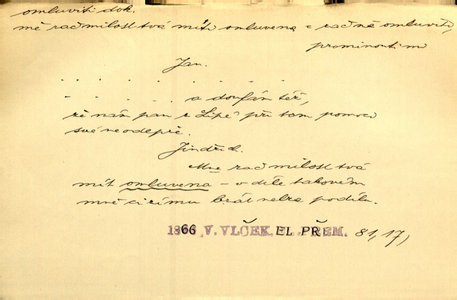 omluviti dok.
mě rač milost tvá míti omluvena a rač ně omluviti,
prominouti m
Jan.
. . . . . . . . . .
. . . . . a doufám též,
že nám pan z Lipé při tom pomoci
své neodepře.
Jindřich.
Mne rač milost tvá
mít omluvena – v díle takovém
mně cizímu brát nelze podílu.
1866 V. VLČEK. EL. PŘEM. 81, 17,